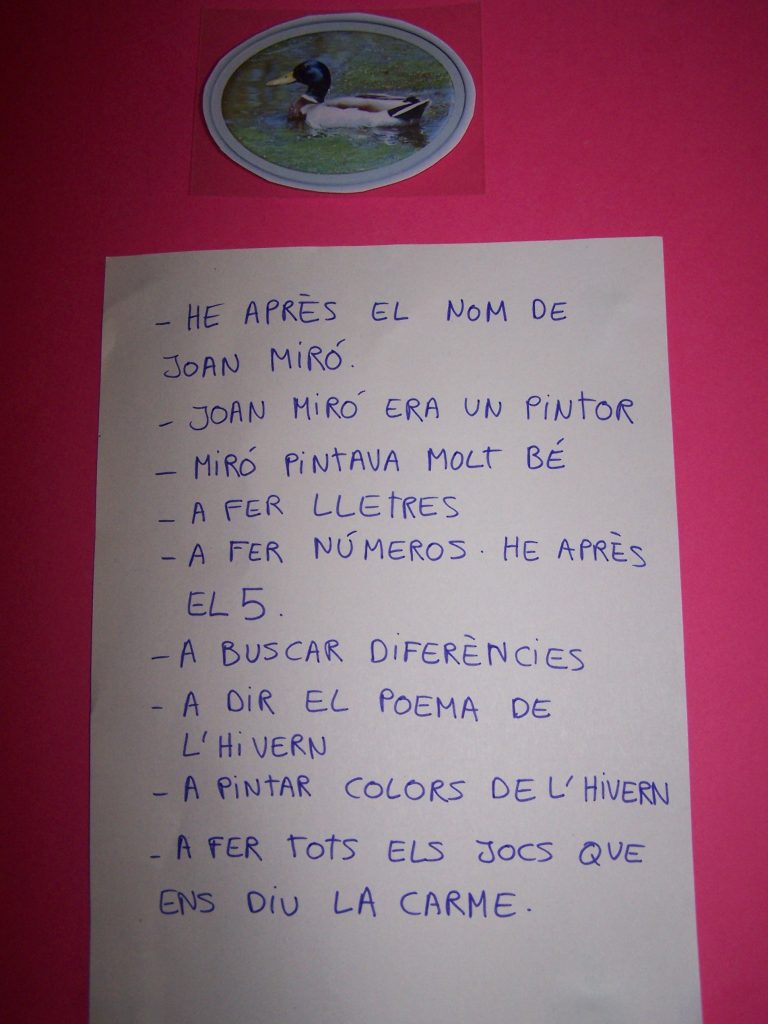 - HE APRÈS EL NOM DE
JOAN MIRÓ.
- JOAN MIRÓ ERA UN PINTOR
- MIRÓ PINTAVA MOLT BÉ
- A FER LLETRES
- A FER NÚMEROS. HE APRÈS
EL 5.
- A BUSCAR DIFERÈNCIES
- A DIR EL POEMA DE
L'HIVERN
- A PINTAR COLORS DE L'HIVERN
- A FER TOTS ELS JOCS QUE
ENS DIU LA CARME.